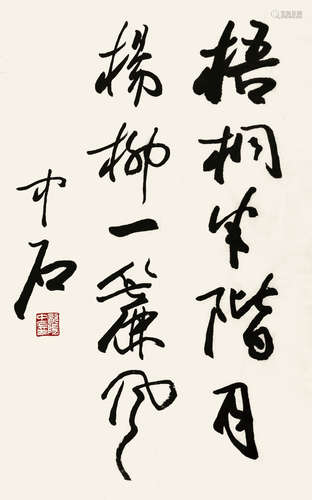 梧桐半階月
楊柳一簾風
中石